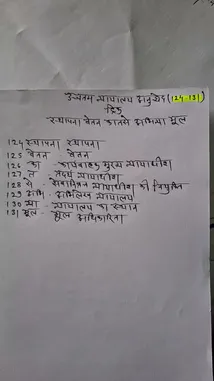 उच्चतम न्यायालय अनुच्छेद (124-131)
ट्रिक
स्थापना वेतन का तसे अभिन्या मूल
124 स्थापना स्थापना
125 वेतन वेतन
126 का - कार्यवाहक मुख्य न्यायाधीश
127 त - तदर्थ न्यायाधीश
128 से सेवानिवृत्त न्यायाधीश की नियुक्ति
129 अभि - अभिलेख न्यायालय
130 न्या - न्यायालय का स्थान
131 मूल - मूल अधिकारिता